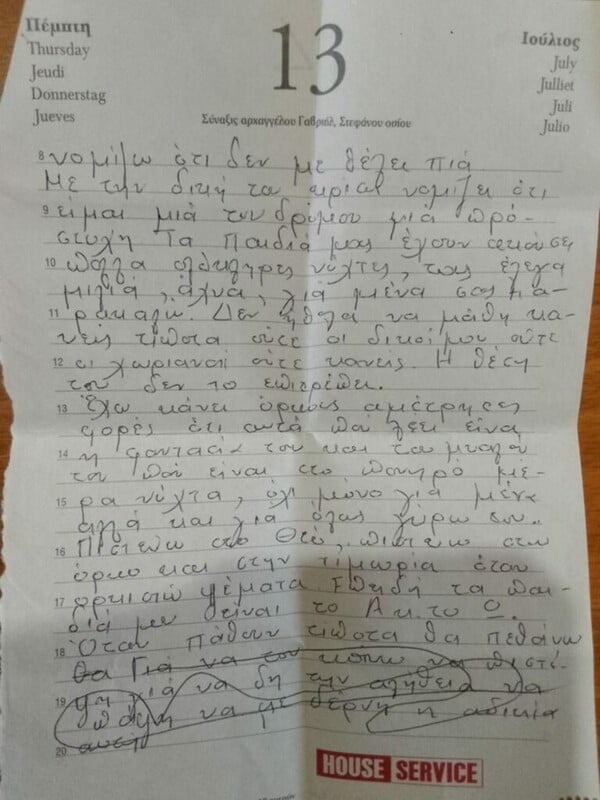 Πέμπτη
Thursday
Jeudi
Donnerstag
Jueves
13
Ιούλιος
July
Julliet
Juli
Julio
Σύναξις αρχαγγέλου Γαβριήλ, Στεφάνου οσίου
8 νομίζω ότι δεν με θέλει πιά
Με την δική του νομίζει ότι
9 είμαι μιά του δρόμου μιά πρό-
στυχη Τα Παιδιά μας έχουν ακούσει
10 πολλα ολόκληρες νύχτες, τους έλεγα
μιλιά, άχνα, γιά μένα σας πα-
11 ρακαλώ. Δεν ήθελα να μάθη κα-
νείς τίποτα ούτε οι δικοί μου ούτε
12 οι χωριανοί ούτε κανείς. Η θέση
του δεν το επιτρέπει.
13 Έχω κάνει όρκους αμέτρητες
φορές ότι αυτά που λέει είναι
14 η φαντασία του και του μυαλού
του που είναι στο πονηρό μέ-
15 ρα νύχτα, όχι μόνο γιά μένα
αλά και για όλους γύρω του..
16 Πιστεύω στο Θεό, πιστεύω στον
όρκο και στην τιμωρία όταν
17 ορκιστώ ψέματα. Επειδή τα παι-
διά μου είναι το Α κ. το Ω.
18 Όταν Πάθουν τίποτα θα πεθάνω
θα Γιά να τον κάνω να πιστέ-
19 ψη γιά να δη την αλήθεια να
πάψη να με δέρνη η αδικία
20
HOUSE SERVICE